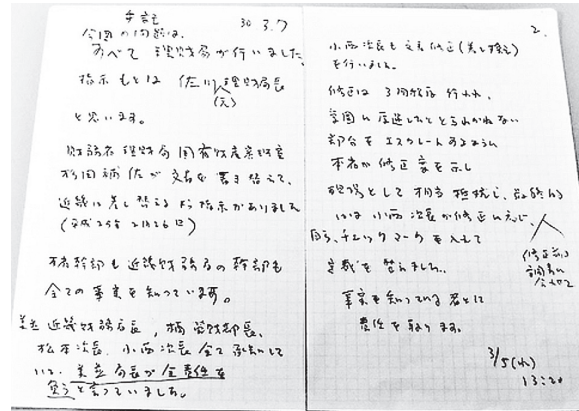 手記
30 3.7
今回の問題は、
すべて理財局が行いました。
指示もとは 佐川理財局長
(元)
と思います。
財務省理財局国有財産業務課
杉田補佐が文書を書き替えて、
近畿に差し替えるよう指示がありました
2月26日)
本省幹部も近畿財務局の幹部も
全ての事実を知っています。
美並近畿財務局長、楠管財部長、
松本次長、小西次長全て承知して
いた、美並局長が全責任を
負うと言っていました。
2.
小西次長も文書修正(差し換え)
を行いました。
修正は3回程行われ、
部分を エスカレートするように
本省が修正案を示し
現場として相当抵抗し、最終的
には小西次長が修正に応じ、
自ら、チェックマークを入れて
決裁を
修正前の
調書に
事実を知っている者として
責任を取ります。
3/5(水)
13:20